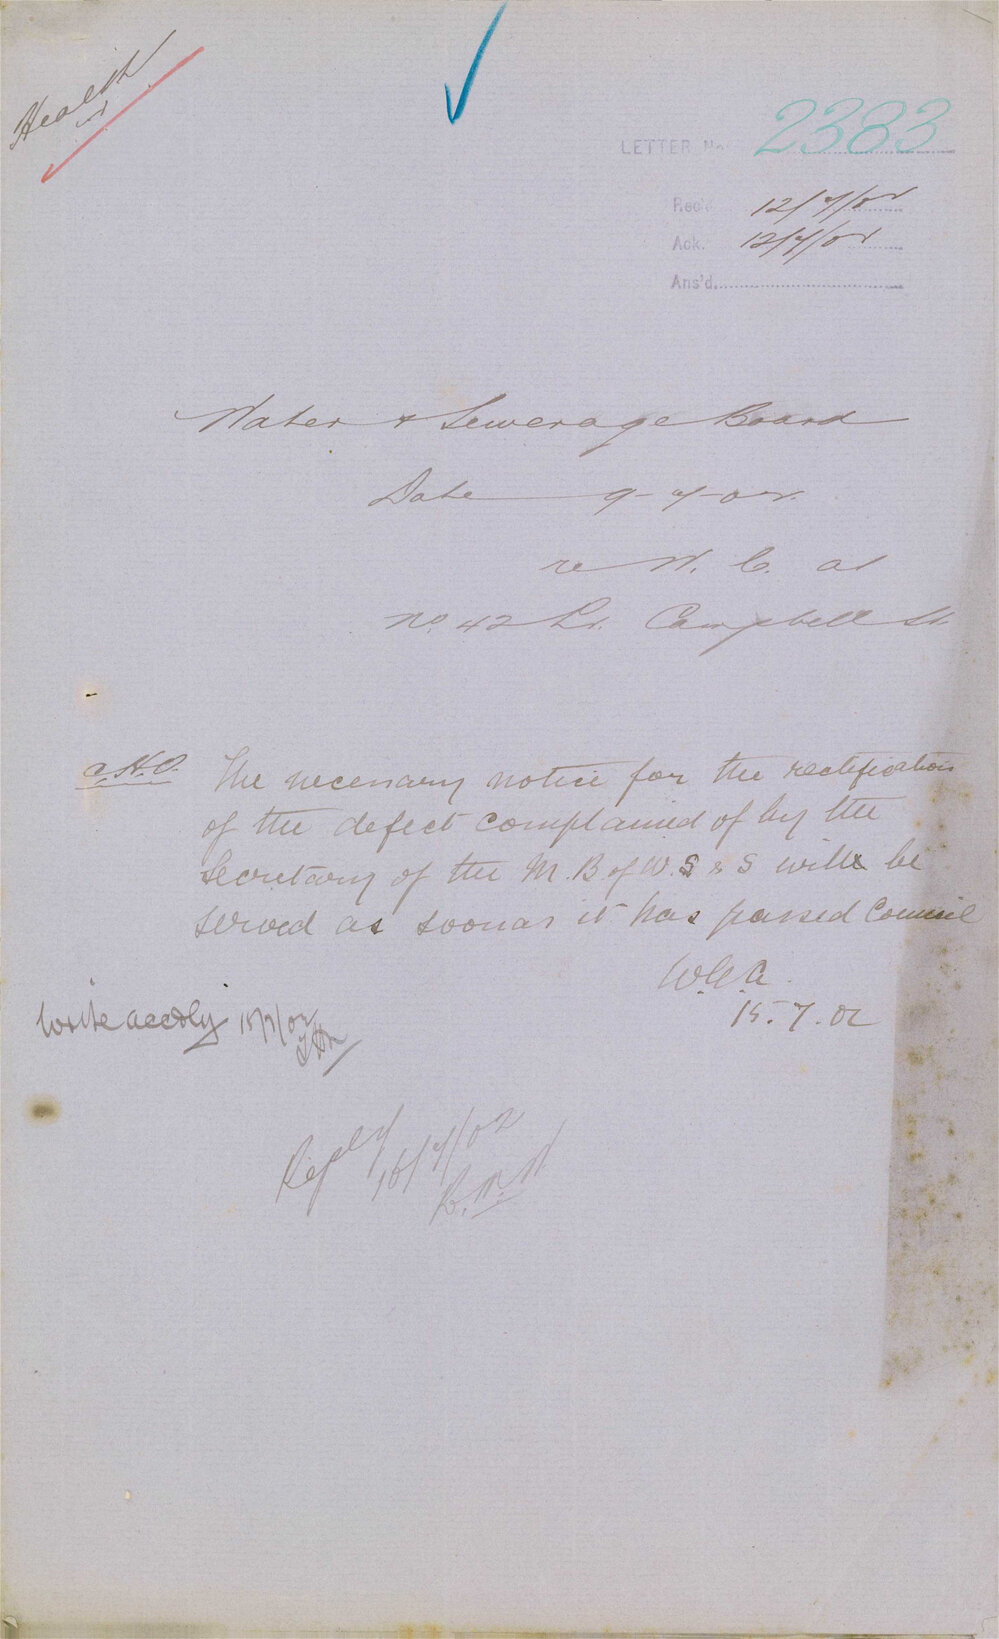 Health
LETTER No 2383
Recd. 12/7/02
Ack. 12/7/02
Ans'd.
Water & Sewerage Board
Date 9-7-02.
re W. C. at
No. 42 Lr. Campbell St.
H.O. The necessary notice for the rectification
of the defect complained of by the
Secretary of the M.B of W.S & S will be
served as soon as it has passed Council
W.G.A.
15.7.02
Write accdly 15/7/02
Repld
16/7/02